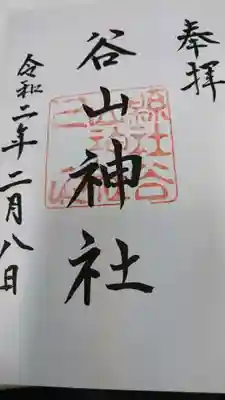 奉拝
谷山神社
令和二年二月八日